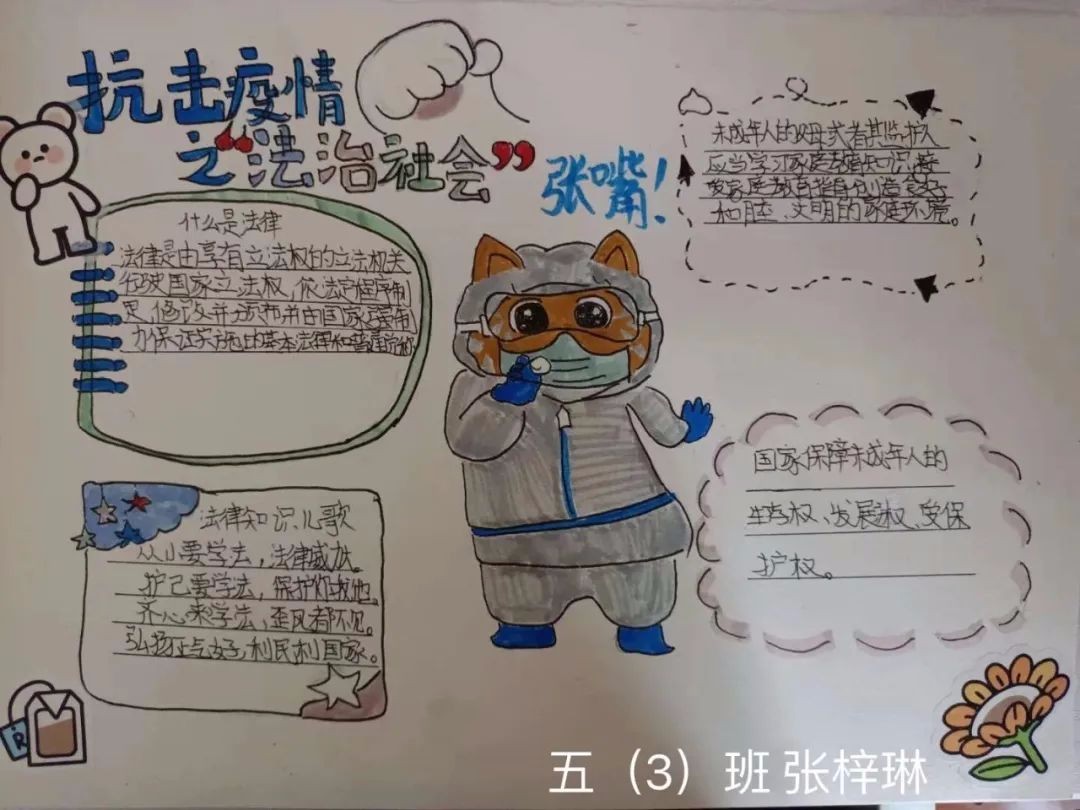 抗击疫情
之“法治社会”
张嘴！
什么是法律
法律是由享有立法权的立法机关
行政国家立法权，依法定程序制
定，修改并颁布，并由国家强制
力保证实施的基本法律和普通
法律知识儿歌
从小要学法，法律威力大。
护己要学法，保护你我他。
齐心来学法，歪风都不见。
弘扬正气好，利民利国家。
未成年人的父母或者其监护人
应当学习家庭教育知识，接
受家庭教育指导，创造良好、
和睦、文明的家庭环境。
国家保障未成年人的
生存权、发展权、受保
护权。
R
五（3）班 张梓琳